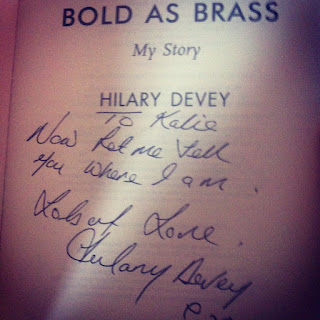 BOLD AS BRASS
My Story
HILARY DEVEY
To Katie
Now let me tell
you where I am.
Lots of Love.
Hilary Devey